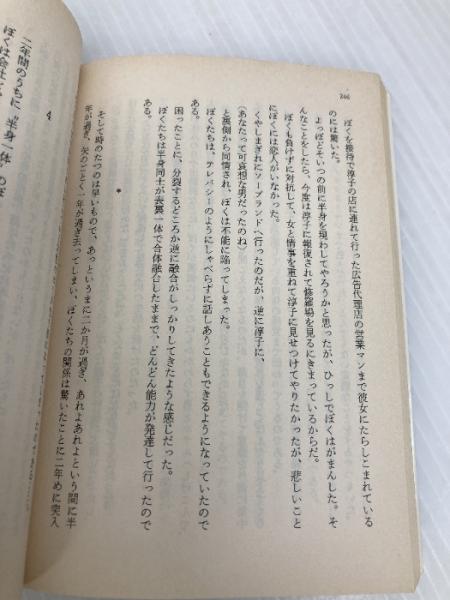 246
ぼくを接待で淳子の店に連れて行った広告代理店の営業マンまで彼女にたらしこまれている
のには驚いた。
よっぽどそいつの前に半身を現わしてやろうかと思ったが、ひっしでぼくはがまんした。そ
んなことをしたら、今度は淳子に報復されて修羅場を見るにきまっているからだ。
ぼくも負けずに対抗して、女と情事を重ねて淳子に見せつけてやりたかったが、悲しいこと
にぼくには恋人がいなかった。
くやしまぎれにソープランドへ行ったのだが、逆に淳子に、
(あなたって可哀想な男だったのね)
と裏側から同情され、ぼくは不能に陥ってしまった。
ぼくたちは、テレパシーのようにしゃべらずに話しあうこともできるようになっていたので
ある。
困ったことに、分裂するどころか逆に融合がしっかりしてきたような感じだった。
ぼくたちは半身同士が表裏一体で合体融合したままで、どんどん能力が発達して行ったので
ある。
そして時のたつのは早いもので、あっというまに二か月が過ぎ、あれよあれよという間に半
年が過ぎ、矢のごとく一年が過ぎ去ってしまい、ぼくたちの関係は驚いたことに二年めに突入
4
二年間のうちに〝半身一体〟のぼ
ぼくは会社